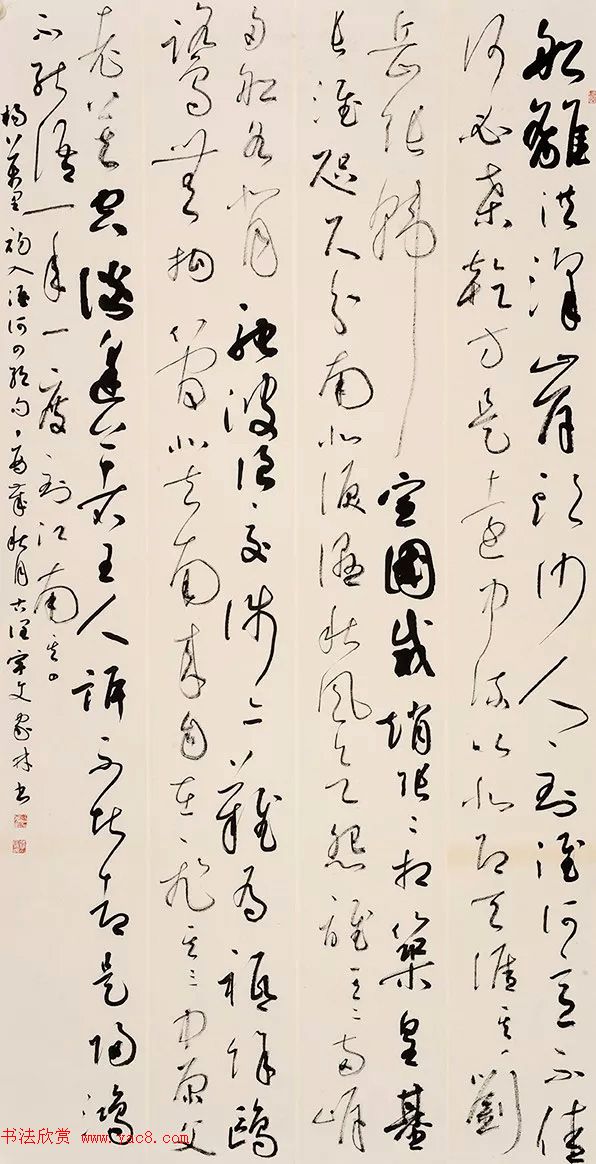 船離洪澤岸頭沙人到淮河意不佳
何必桑乾方是遠中流以北即天涯其一劉
岳張韓宣國威趙張二相築皇基
長淮咫尺分南北淚濕秋風欲怨誰其二兩岸
舟船各背馳波痕交涉亦難為祗餘鷗
鷺無拘管北去南來自在飛其三中原父
老莫空談逢著王人訴不堪却是歸鴻
不能語一年一度到江南其四
楊萬里初入淮河四絕句 秋月 林書
书法欣赏 www.yac8.com